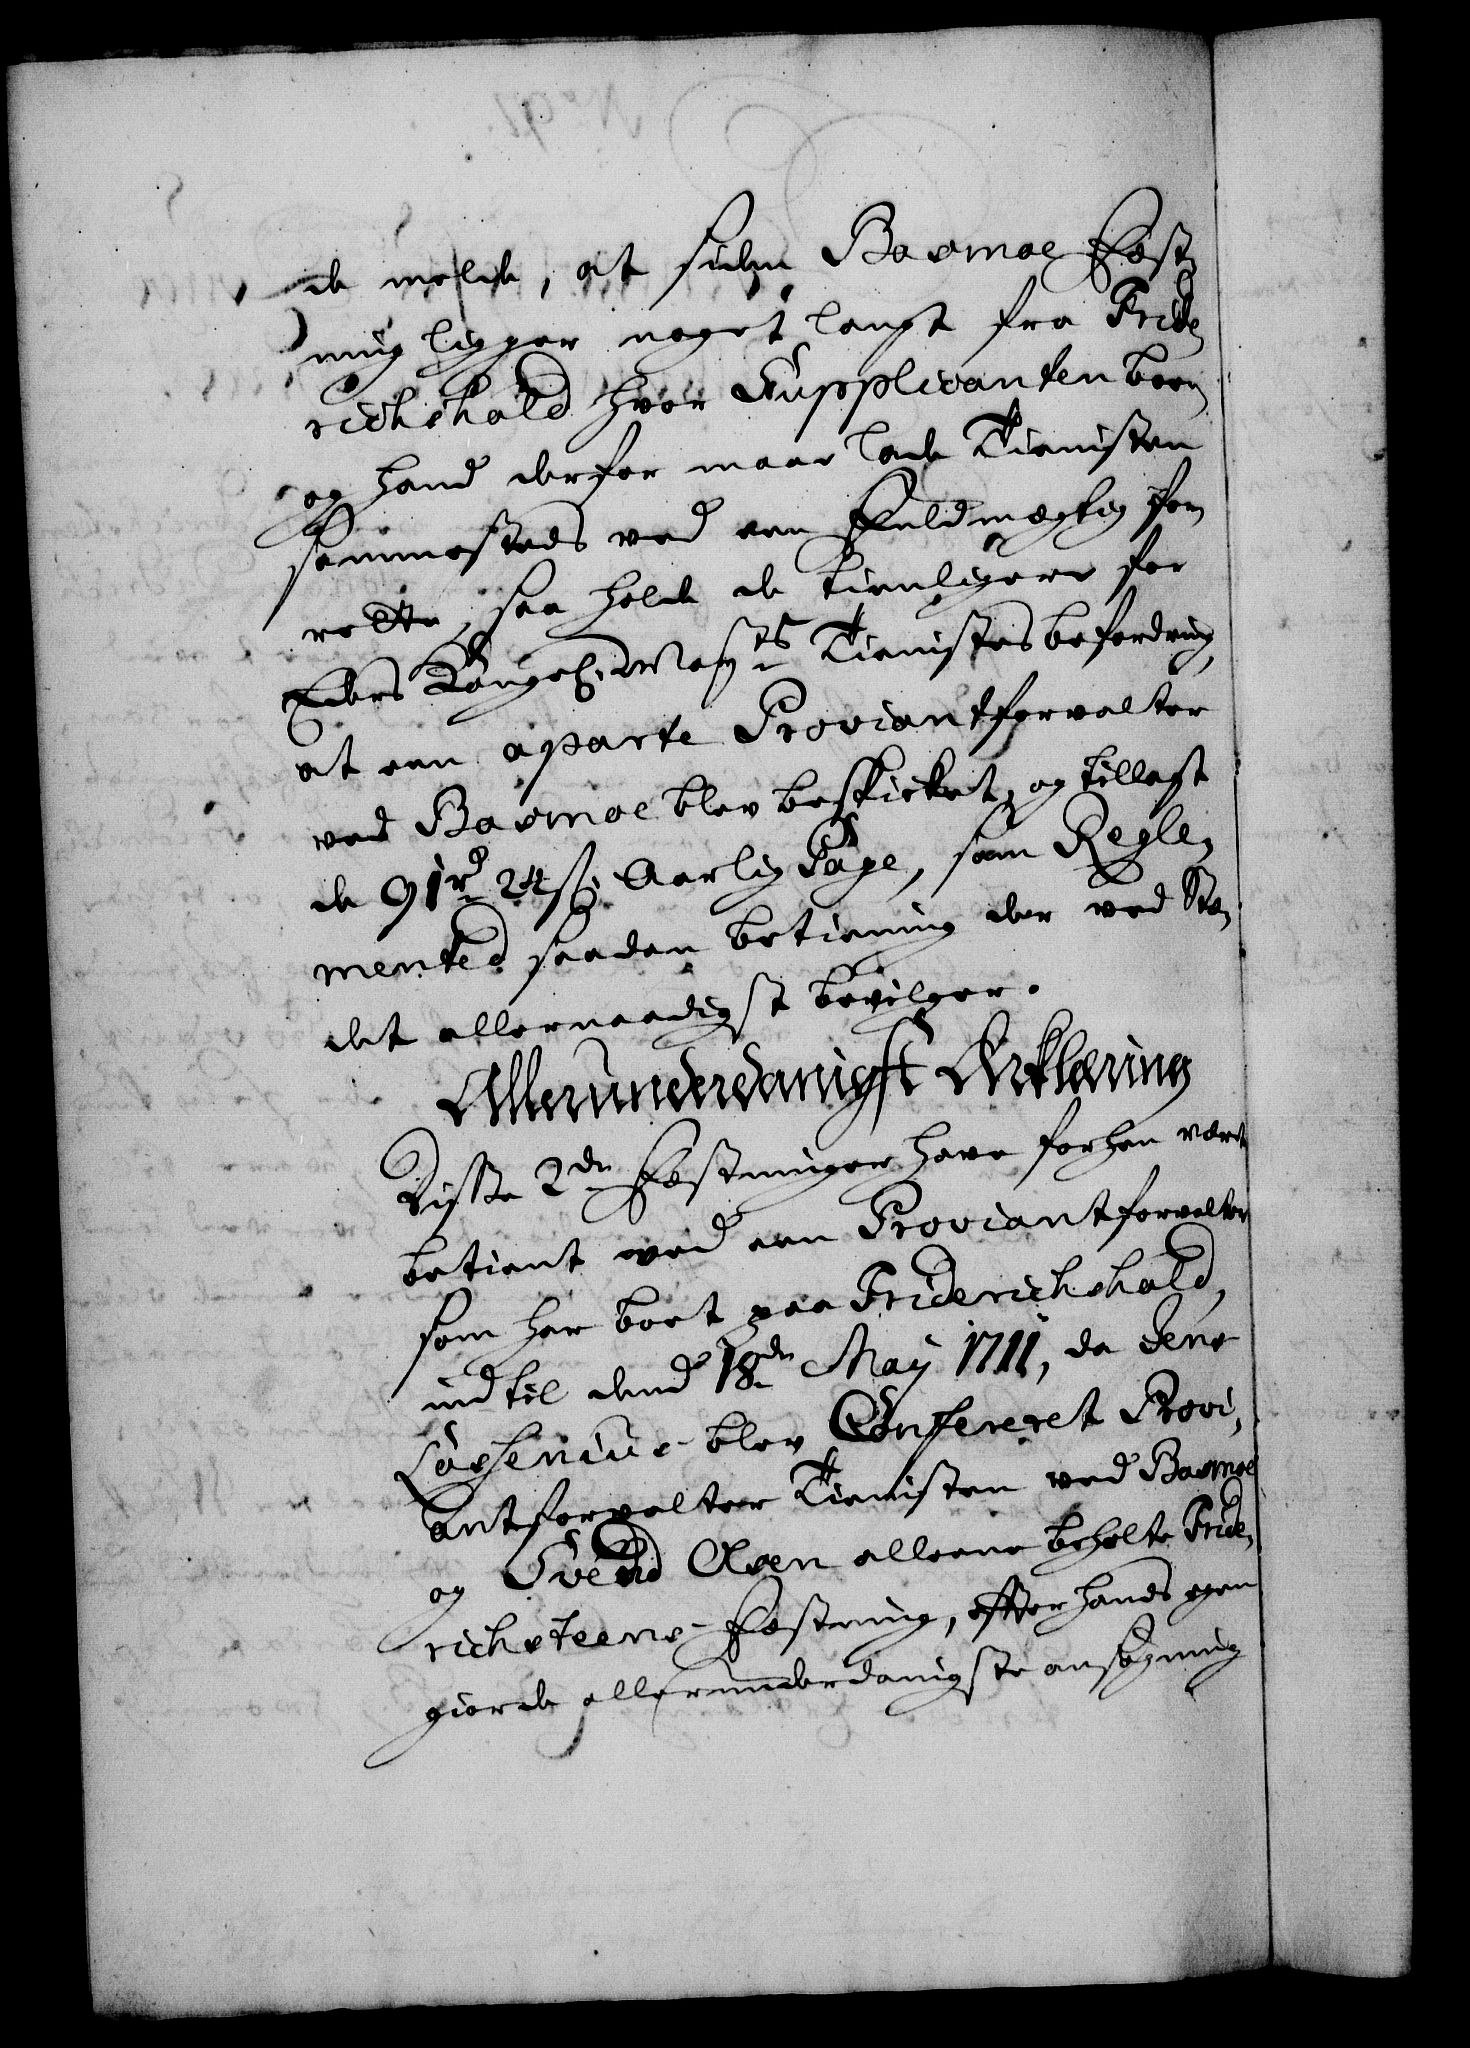 de melde, at siden Basmoe Fæst„
ning ligger noget langt fra Fride„
richshald hvor Supplicanten boer
og hand derfor maae lade Tienisten
sammesteds ved een Fuldmegtig for„
rette, saa holde de tienligere for
Eders Kongel. Mayts Tienistes befordring,
at een aparte Proviantforvalter
ved Basmoe blev beskicket, og tillagt
de 91 rd 24 s. Aarlig Gage, som Regle„
mented saadan betiening der ved Ste„
det allernaadigst bevilger.
Allerunderdanigst Erklæring
Disse 2de Fæstninger have forhen været
betient ved een Proviantforvalter
som har boet paa Friderichshald,
indtil dend 18de May 1711, da Jens
blev Confereret Provi„
antforvalter Tienisten ved Basmoe
og Svend Oxen alleene beholte Fride„
richsteens Fæstning, effter hands egen
giorde allerunderdanigste ansøgning